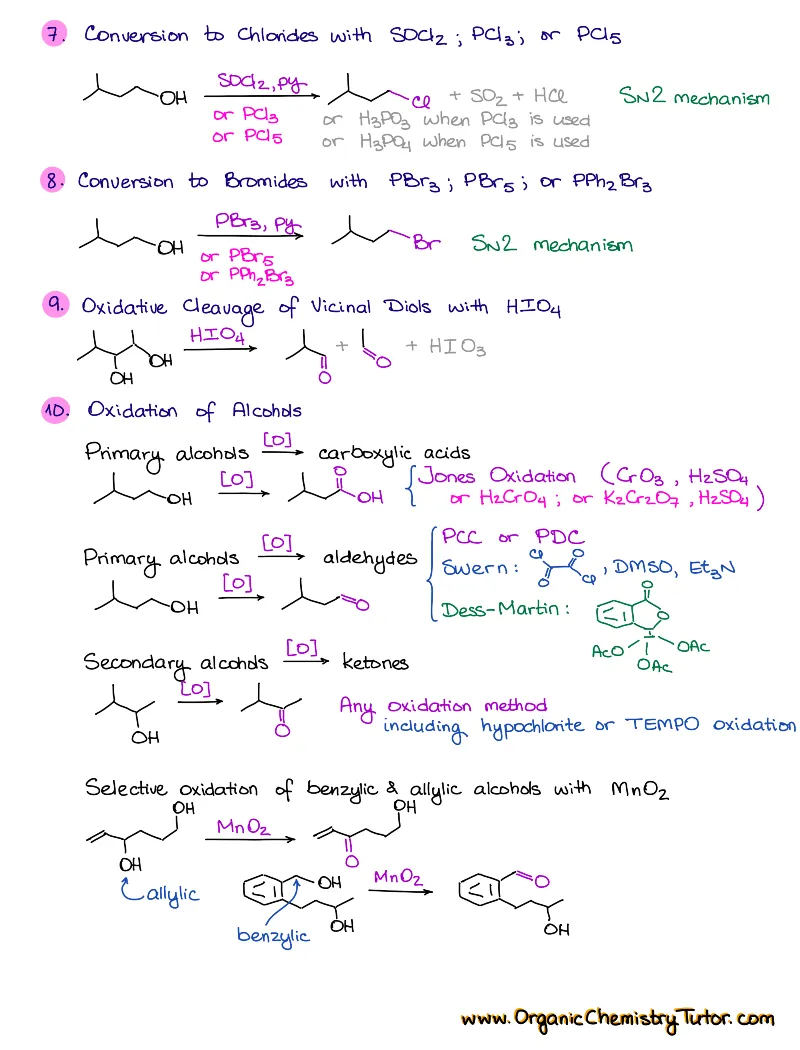 7. Conversion to Chlorides with SOCl2 ; PCl3; or PCl5
OH
SOCl2, py
or PCl3
or PCl5
Cl + SO2 + HCl
or H3PO3 when PCl3 is used
or H3PO4 when PCl5 is used
SN2 mechanism
8. Conversion to Bromides with PBr3 ; PBr5 ; or PPh2Br3
OH
PBr3, py
or PBr5
or PPh2Br3
Br
SN2 mechanism
9. Oxidative Cleavage of Vicinal Diols with HIO4
OH
OH
HIO4
O
+
O
+ HIO3
10. Oxidation of Alcohols
Primary alcohols [O] carboxylic acids
OH
[O]
O
OH
Jones Oxidation (CrO3, H2SO4
or H2CrO4 ; or K2Cr2O7, H2SO4)
Primary alcohols [O] aldehydes
OH
[O]
O
PCC or PDC
Swern: Cl O O Cl , DMSO, Et3N
Dess-Martin:
O
O
I
AcO
OAc
OAc
Secondary alcohols [O] ketones
OH
[O]
O
Any oxidation method
including hypochlorite or TEMPO oxidation
Selective oxidation of benzylic & allylic alcohols with MnO2
OH
OH
MnO2
OH
O
allylic
OH
OH
benzylic
MnO2
O
OH
www.OrganicChemistryTutor.com